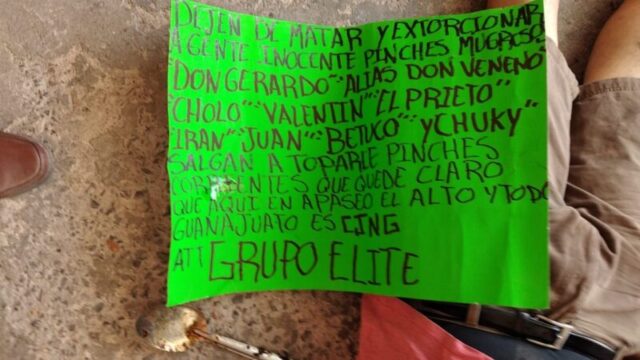 DEJEN DE MATAR Y EXTORCIONAR
A GENTE INOCENTE PINCHES MUGROSOS
"DON GERARDO" "ALIAS DON VENENO"
"CHOLO" "VALENTIN" "EL PRIETO"
"IRAN" "JUAN" "BETUCO" Y CHUKY"
SALGAN A TOPARLE PINCHES
CORRIENTES QUE QUEDE CLARO
QUE AQUI EN APASEO EL ALTO Y TODO
GUANAJUATO ES CJNG
ATT GRUPO ELITE